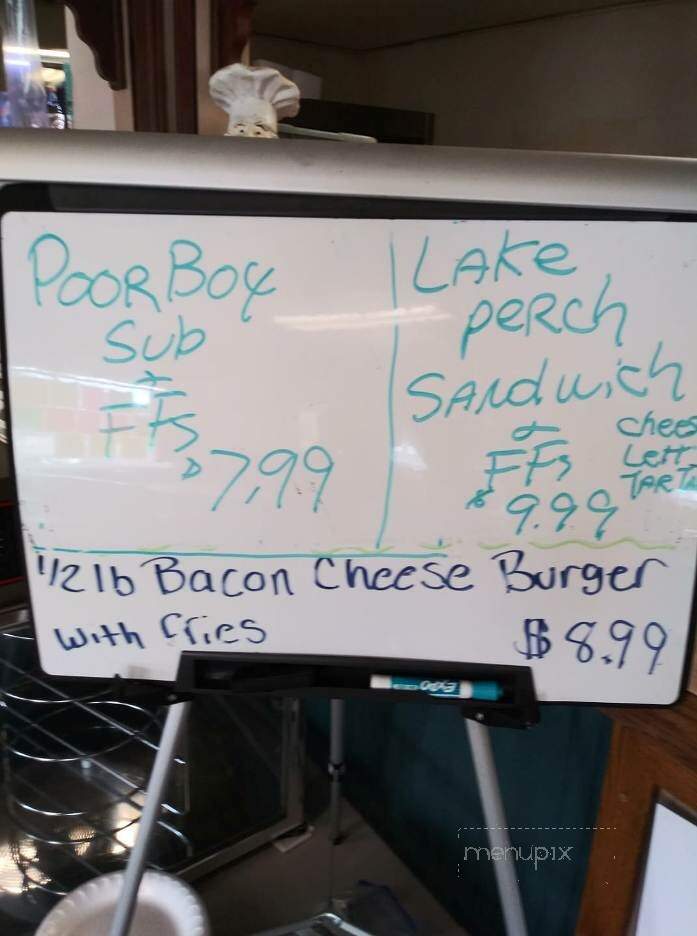 POOR BOY
SUB
&
FFs
$7.99
LAKE
PERCH
SANDWICH
&
FFs
$9.99
1/2 lb Bacon Cheese Burger
with fries
$8.99
EXPO
menupix